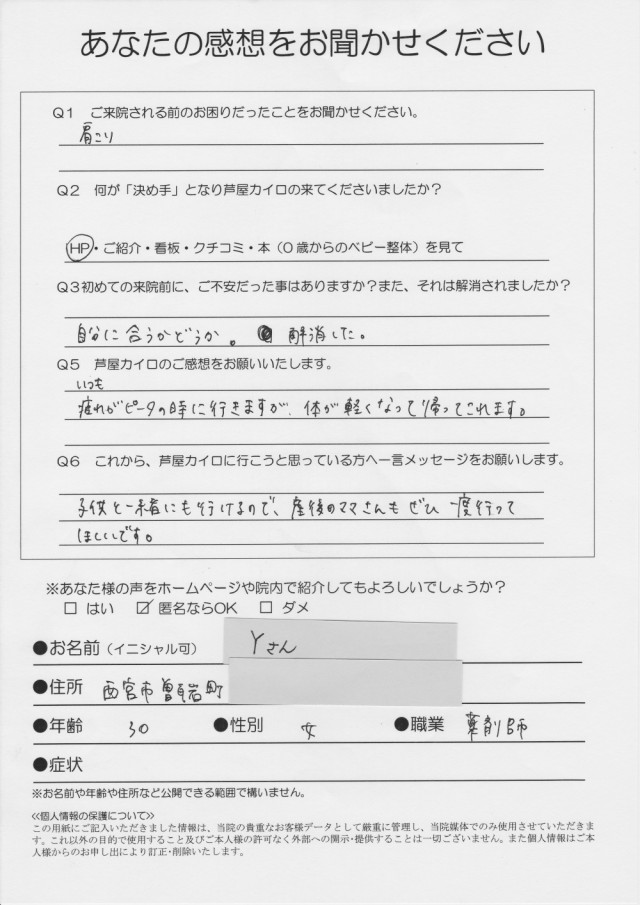 あなたの感想をお聞かせください
Q1 ご来院される前のお困りだったことをお聞かせください。
肩こり
Q2 何が「決め手」となり芦屋カイロの来てくださいましたか?
HP・ご紹介・看板・クチコミ・本(0歳からのベビー整体)を見て
Q3初めての来院前に、ご不安だった事はありますか?また、それは解消されましたか?
自分に合うかどうか。 解消した。
Q5 芦屋カイロのご感想をお願いいたします。
いつも
疲れがピータの時に行きますが、体が軽くなって帰ってこれます。
Q6 これから、芦屋カイロに行こうと思っている方へ一言メッセージをお願いします。
子供と一緒にも行けるので、産後のママさんもぜひ一度行って
ほしいです。
※あなた様の声をホームページや院内で紹介してもよろしいでしょうか?
□ はい ☑ 匿名ならOK □ ダメ
●お名前(イニシャル可) Yさん
●住所 西宮市 町
●年齢 30 ●性別 女 ●職業 薬剤師
●症状
※お名前や年齢や住所など公開できる範囲で構いません。
≪個人情報の保護について≫
この用紙にご記入いただきました情報は、当院の貴重なお客様データとして厳重に管理し、当院媒体でのみ使用させていただきま
す。これ以外の目的で使用すること及びご本人様の許可なく外部への開示・提供することは一切ございません。また個人情報はご本
人様からのお申し出により訂正・削除いたします。